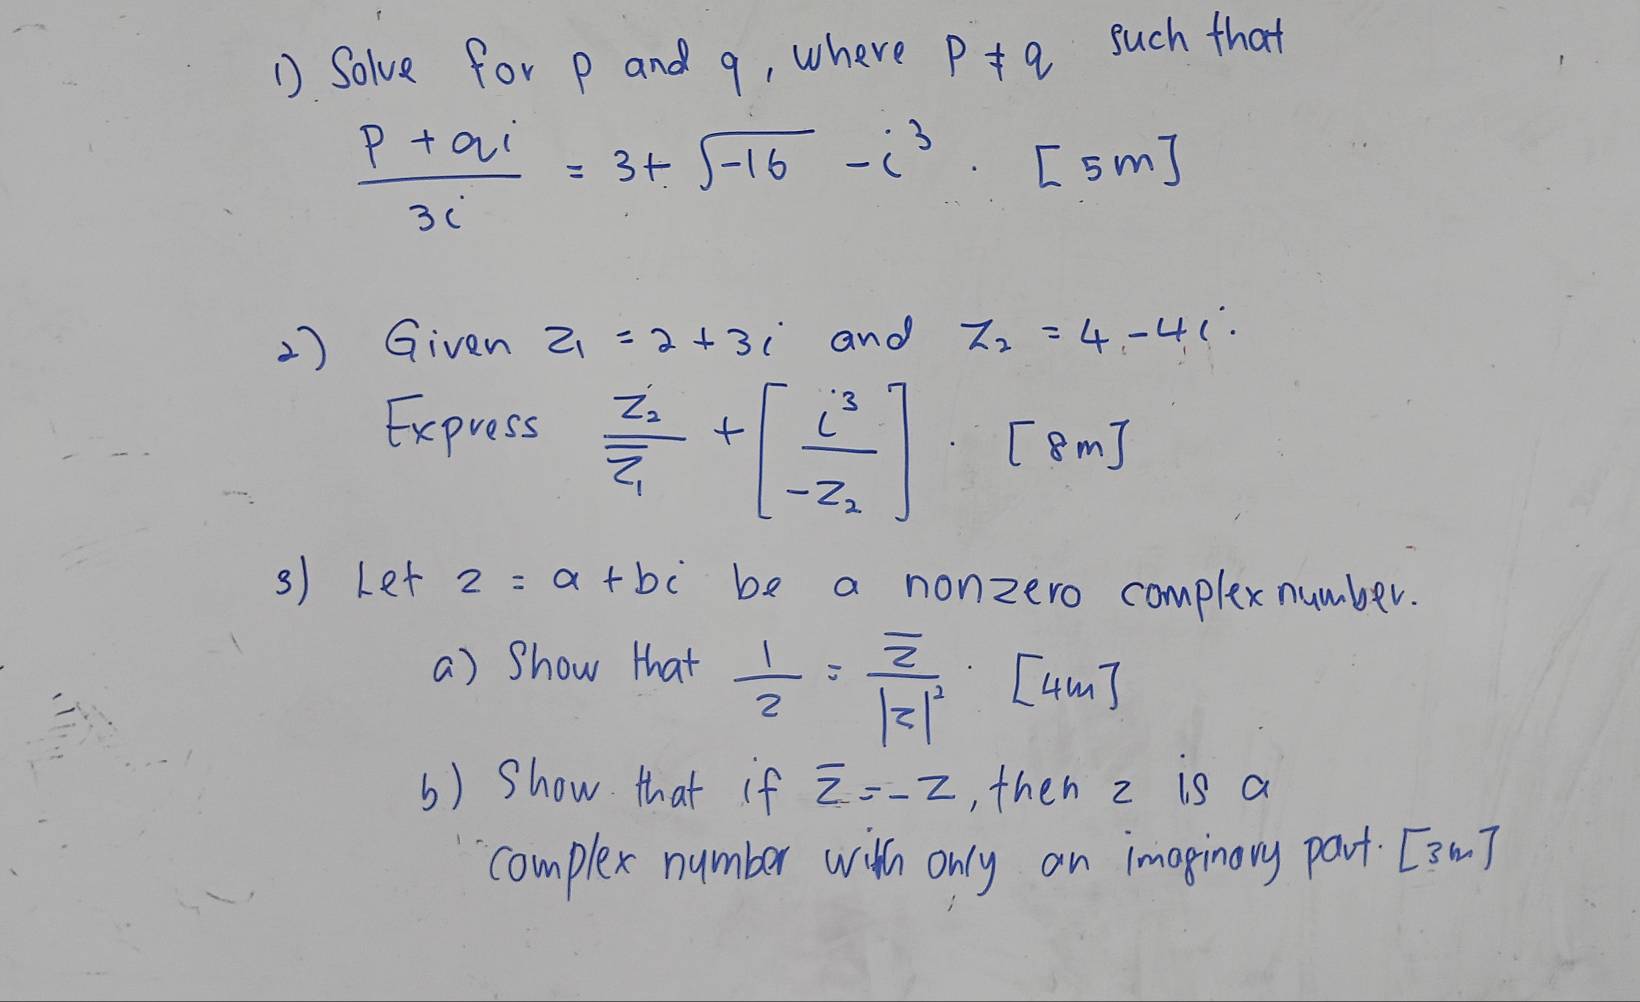 1) Solve for p and q, where p ≠ q such that
p + qi / 3i = 3 + √-16 - i³. [5m]
2) Given z₁ = 2 + 3i and z₂ = 4 - 4i.
Express z₂ / z̅₁ + [ i³ / -z₂ ]. [8m]
3) Let z = a + bi be a nonzero complex number.
a) Show that 1 / z = z̅ / |z|². [4m]
b) Show that if z̅ = -z, then z is a
complex number with only an imaginary part. [3m]